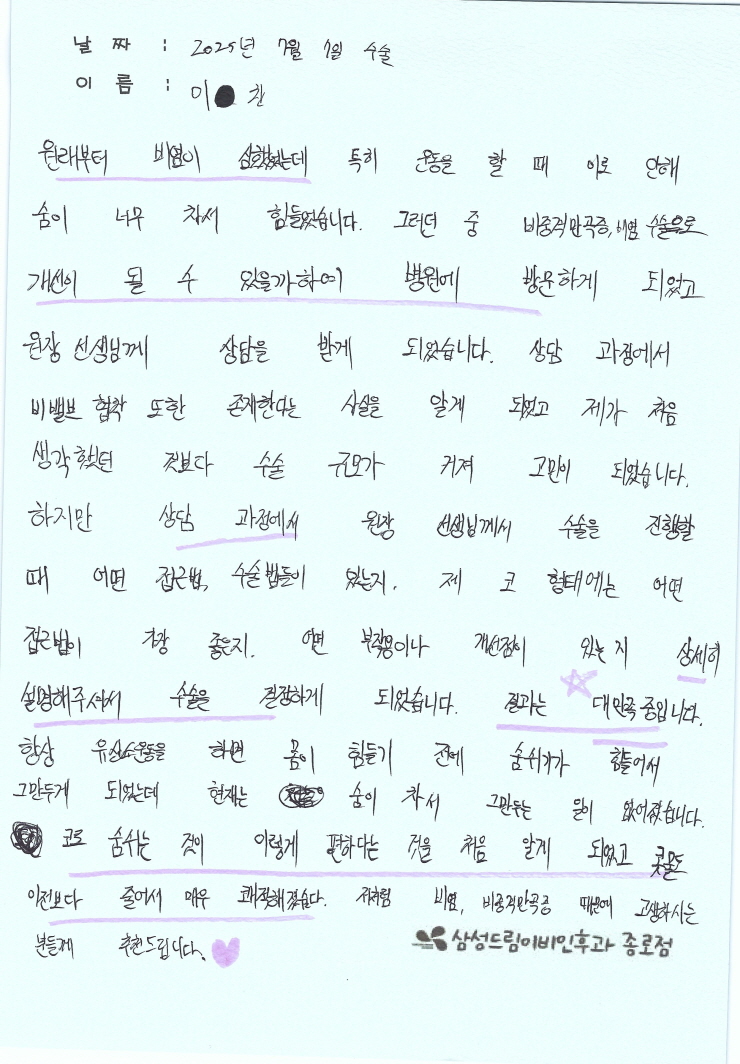 날 짜 : 2025년 7월 1일 수술
이 름 : 이 찬
원래부터 비염이 심했었는데 특히 운동을 할 때 이로 인해
숨이 너무 차서 힘들었습니다. 그러던 중 비중격만곡증, 비염 수술으로
개선이 될 수 있을까하여 병원에 방문하게 되었고
원장 선생님께 상담을 받게 되었습니다. 상담 과정에서
비밸브 협착 또한 존재한다는 사실을 알게 되었고 제가 처음
생각했던 것보다 수술 규모가 커져 고민이 되었습니다.
하지만 상담 과정에서 원장 선생님께서 수술을 진행할
때 어떤 접근법, 수술법들이 있는지, 제 코 형태에는 어떤
접근법이 가장 좋은지, 어떤 부작용이나 개선점이 있는지 상세히
설명해주셔서 수술을 결정하게 되었습니다. 결과는 대만족 중입니다.
항상 유산소운동을 하면 몸이 힘들기 전에 숨쉬기가 힘들어서
그만두게 되었는데 현재는 숨이 차서 그만두는 일이 없어졌습니다.
코로 숨쉬는 것이 이렇게 편하다는 것을 처음 알게 되었고 콧물도
이전보다 줄어서 매우 쾌적해졌습니다. 저처럼 비염, 비중격만곡증 때문에 고생하시는
분들께 추천드립니다.
삼성드림이비인후과 종로점